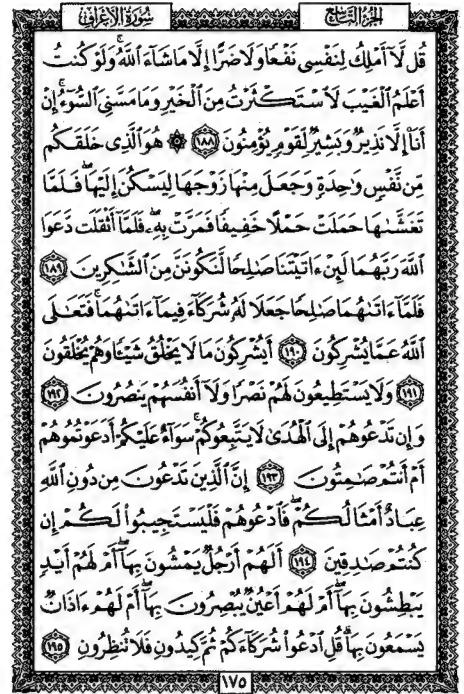 الجزء التاسع
سورة الأعراف
قُل لَّآ أَمْلِكُ لِنَفْسِى نَفْعًا وَلَا ضَرًّا إِلَّا مَا شَآءَ ٱللَّهُ ۚ وَلَوْ كُنتُ
أَعْلَمُ ٱلْغَيْبَ لَٱسْتَكْثَرْتُ مِنَ ٱلْخَيْرِ وَمَا مَسَّنِىَ ٱلسُّوٓءُ ۚ إِنْ
أَنَا۠ إِلَّا نَذِيرٌ وَبَشِيرٌ لِّقَوْمٍ يُؤْمِنُونَ ١٨٨ ۞ هُوَ ٱلَّذِى خَلَقَكُم
مِّن نَّفْسٍ وَٰحِدَةٍ وَجَعَلَ مِنْهَا زَوْجَهَا لِيَسْكُنَ إِلَيْهَا ۖ فَلَمَّا
تَغَشَّىٰهَا حَمَلَتْ حَمْلًا خَفِيفًا فَمَرَّتْ بِهِۦ ۖ فَلَمَّآ أَثْقَلَت دَّعَوَا
ٱللَّهَ رَبَّهُمَا لَئِنْ ءَاتَيْتَنَا صَٰلِحًا لَّنَكُونَنَّ مِنَ ٱلشَّٰكِرِينَ ١٨٩
فَلَمَّآ ءَاتَىٰهُمَا صَٰلِحًا جَعَلَا لَهُۥ شُرَكَآءَ فِيمَآ ءَاتَىٰهُمَا ۚ فَتَعَٰلَى
ٱللَّهُ عَمَّا يُشْرِكُونَ ١٩٠ أَيُشْرِكُونَ مَا لَا يَخْلُقُ شَيْـًٔا وَهُمْ يُخْلَقُونَ
١٩١ وَلَا يَسْتَطِيعُونَ لَهُمْ نَصْرًا وَلَآ أَنفُسَهُمْ يَنصُرُونَ ١٩٢
وَإِن تَدْعُوهُمْ إِلَى ٱلْهُدَىٰ لَا يَتَّبِعُوكُمْ ۚ سَوَآءٌ عَلَيْكُمْ أَدَعَوْتُمُوهُمْ
أَمْ أَنتُمْ صَٰمِتُونَ ١٩٣ إِنَّ ٱلَّذِينَ تَدْعُونَ مِن دُونِ ٱللَّهِ
عِبَادٌ أَمْثَالُكُمْ ۖ فَٱدْعُوهُمْ فَلْيَسْتَجِيبُوا۟ لَكُمْ إِن
كُنتُمْ صَٰدِقِينَ ١٩٤ أَلَهُمْ أَرْجُلٌ يَمْشُونَ بِهَآ ۖ أَمْ لَهُمْ أَيْدٍ
يَبْطِشُونَ بِهَآ ۖ أَمْ لَهُمْ أَعْيُنٌ يُبْصِرُونَ بِهَآ ۖ أَمْ لَهُمْ ءَاذَانٌ
يَسْمَعُونَ بِهَا ۗ قُلِ ٱدْعُوا۟ شُرَكَآءَكُمْ ثُمَّ كِيدُونِ فَلَا تُنظِرُونِ ١٩٥
١٧٥